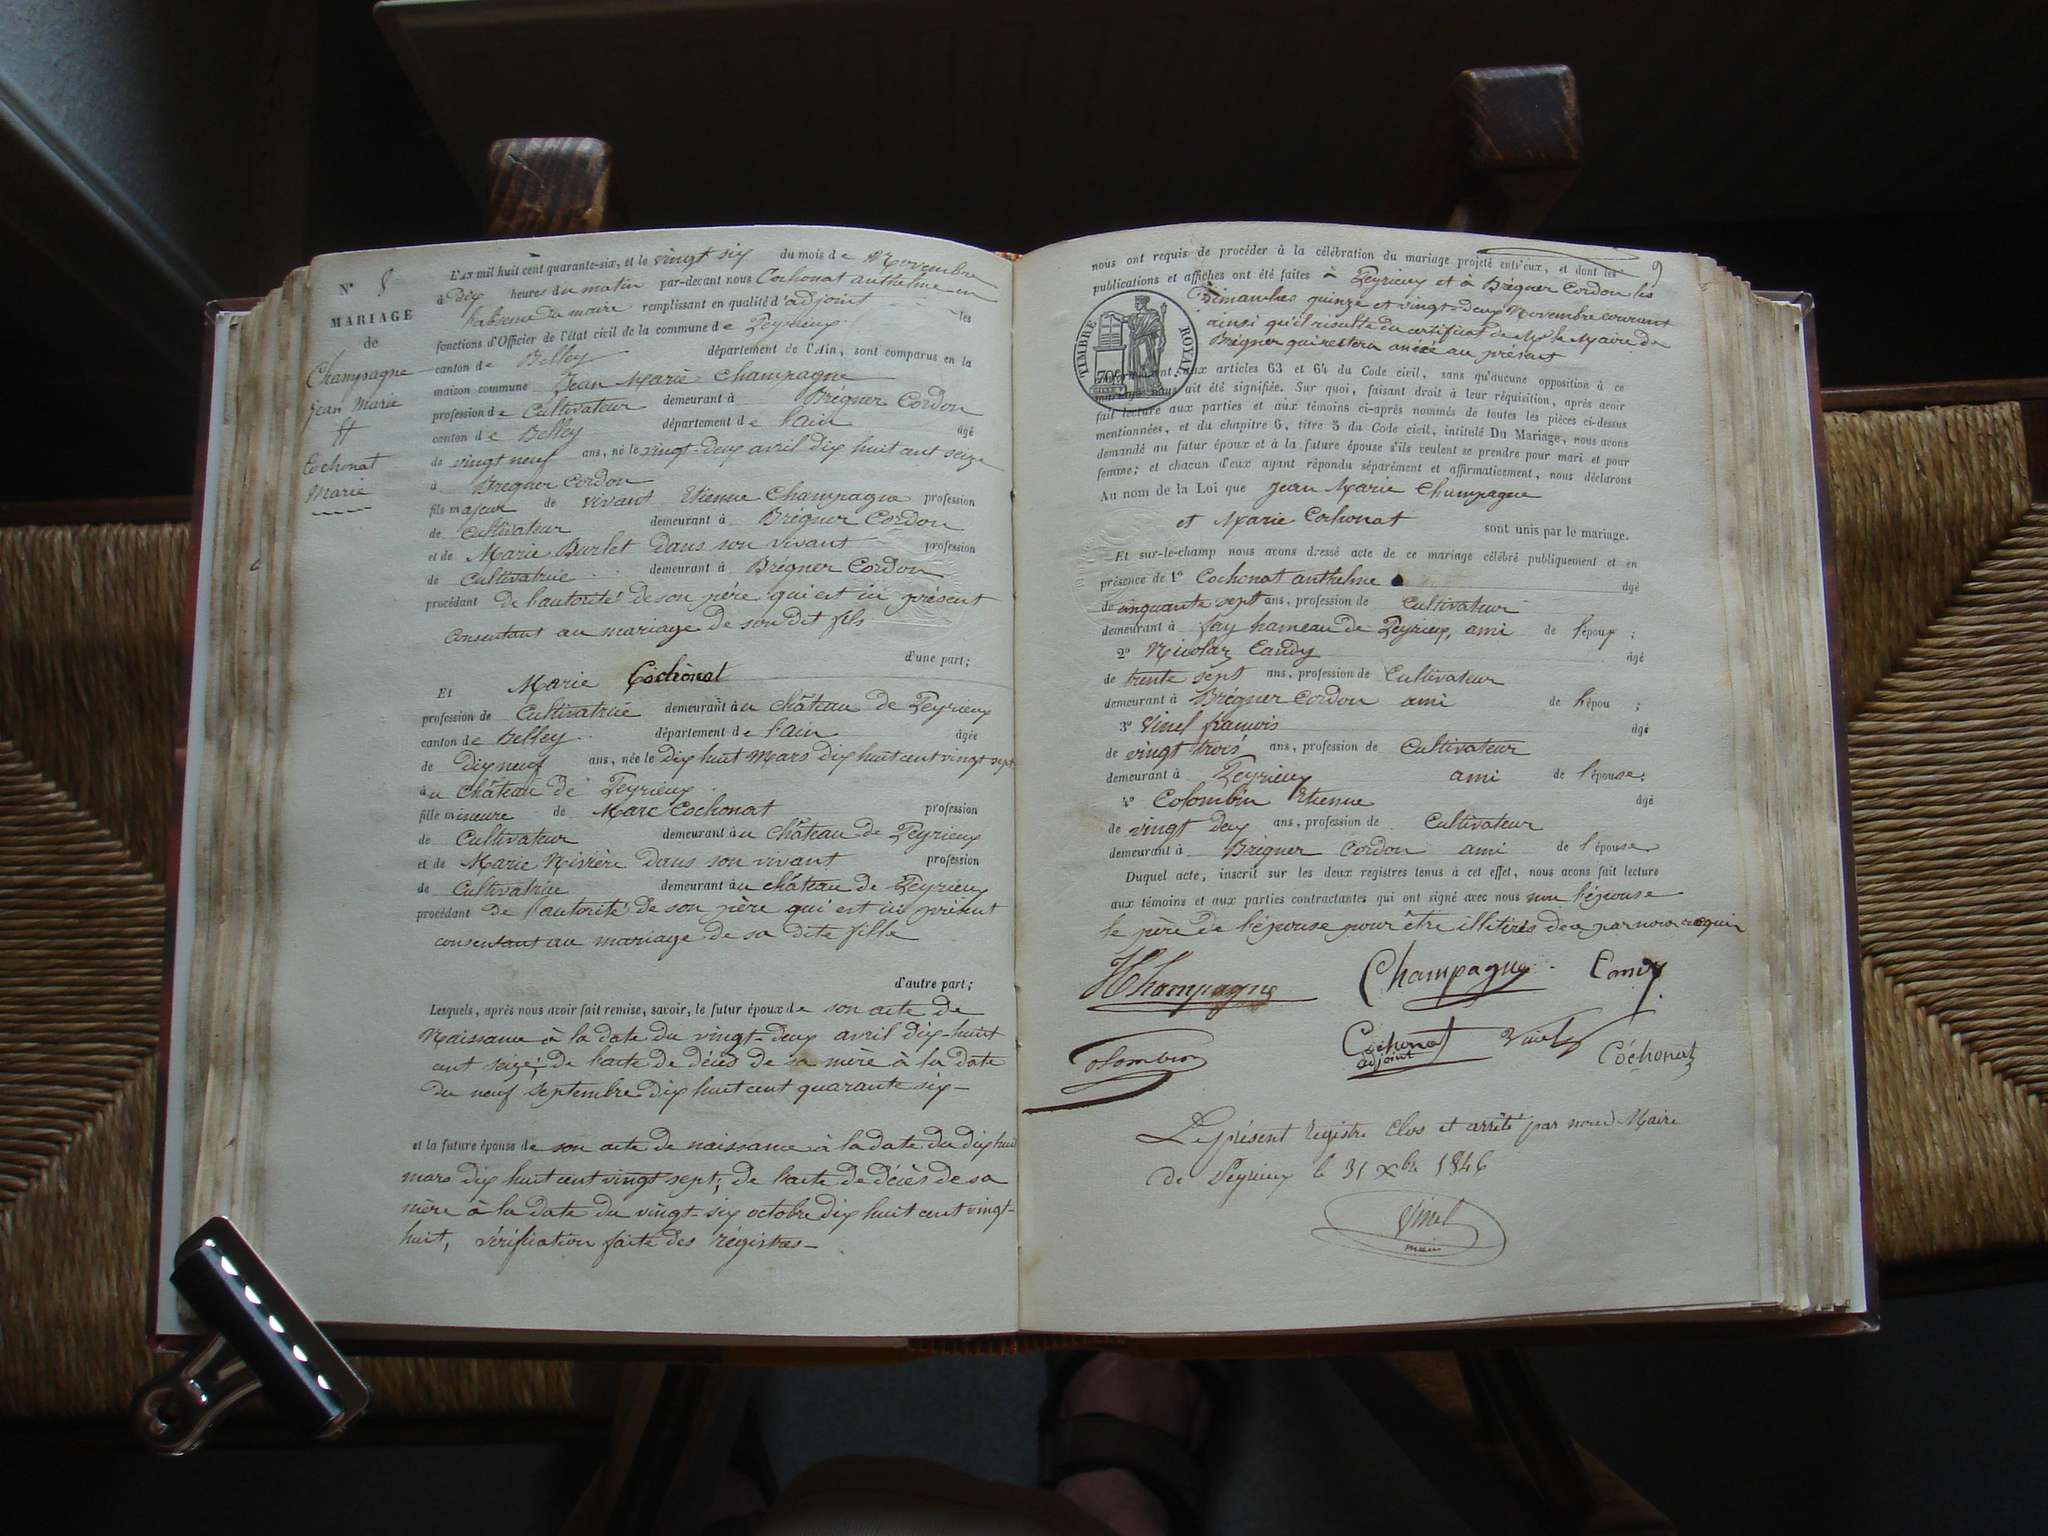 N° 8
MARIAGE
de
Champagne
jean Marie
et
Cochonat
Marie
L'AN mil huit cent quarante-six, et le vingt six du mois de Novembre
à Dix heures du matin par-devant nous Cochonat anthelme en
l'absence du maire remplissant en qualité d'adjoint les
fonctions d'Officier de l'état civil de la commune de Peyrieux
canton de Belley département de l'Ain, sont comparus en la
maison commune Jean Marie Champagne
profession de Cultivateur demeurant à Brégner Cordon
canton de Belley département de l'ain âgé
de vingt neuf ans, né le vingt-deux avril dix huit cent seize
à Bregner Cordon
fils majeur de vivant Etienne Champagne profession
de Cultivateur demeurant à Brégner Cordon
et de Marie Burlet dans son vivant profession
de Cultivatrice demeurant à Brégner Cordon
procédant de l'autorité de son père qui est ici présent
Consentant au mariage de son dit fils
d'une part;
Et Marie Cochonat
profession de Cultivatrice demeurant à u château de Peyrieux
canton de Belley département de l'ain âgée
de dix neuf ans, née le dix huit Mars dix huit cent vingt sept
à u Château de Peyrieux
fille mineure de Marc Cochonat profession
de Cultivateur demeurant à u château de Peyrieux
et de Marie Rivière dans son vivant profession
de Cultivatrice demeurant à u château de Peyrieux
procédant de l'autorité de son père qui est ici présent
consentant au mariage de sa dite fille
d'autre part;
Lesquels, après nous avoir fait remise, savoir, le futur époux de son acte de
Naissance à la date du vingt-deux avril dix-huit
cent seize; de l'acte de décès de sa mère à la date
du neuf septembre dix huit cent quarante six
et la future épouse de son acte de naissance à la date du dix huit
mars dix huit cent vingt sept; de l'acte de décès de sa
mère à la date du vingt-six octobre dix huit cent vingt-
huit, vérification faite des régistres
9
nous ont requis de procéder à la célébration du mariage projeté entr'eux, et dont les
publications et affiches ont été faites à Peyrieux et à Brégner Cordon les
Dimanches quinze et vingt-deux Novembre courant
ainsi qu'il résulte du certificat de Mr le Maire de
Brégner qui restera anéxé au présent
TIMBRE ROYAL
articles 63 et 64 du Code civil, sans qu'aucune opposition à ce
mariage nous ait été signifiée. Sur quoi, faisant droit à leur réquisition, après avoir
fait lecture aux parties et aux témoins ci-après nommés de toutes les pièces ci-dessus
mentionnées, et du chapitre 6, titre 5 du Code civil, intitulé Du Mariage, nous avons
demandé au futur époux et à la future épouse s'ils veulent se prendre pour mari et pour
femme; et chacun d'eux ayant répondu séparément et affirmativement, nous déclarons
Au nom de la Loi que Jean Marie Champagne
et Marie Cochonat sont unis par le mariage.
Et sur-le-champ nous avons dressé acte de ce mariage célébré publiquement et en
présence de 1° Cochonat anthelme âgé
de cinquante sept ans, profession de Cultivateur
demeurant à fay hameau de Peyrieux, ami de l'époux;
2° Nicolas Candy âgé
de trente sept ans, profession de Cultivateur
demeurant à Brégner Cordon ami de l'épou ;
3° Vinel francois âgé
de vingt trois ans, profession de Cultivateur
demeurant à Peyrieux ami de l'épouse;
4° Colombin Etienne âgé
de vingt deux ans, profession de Cultivateur
demeurant à Brégner Cordon ami de l'épouse
Duquel acte, inscrit sur les deux registres tenus à cet effet, nous avons fait lecture
aux témoins et aux parties contractantes qui ont signé avec nous non l'épouse
le père de l'épouse pour être illitirés de ce par nous requis
Champagne Champagne Candy
Colombin Cochonat adjoint Vinel Cochonat
Le présent registre clos et arrêté par nous Maire
de Peyrieux le 31 Xbre 1846
Vinel
maire